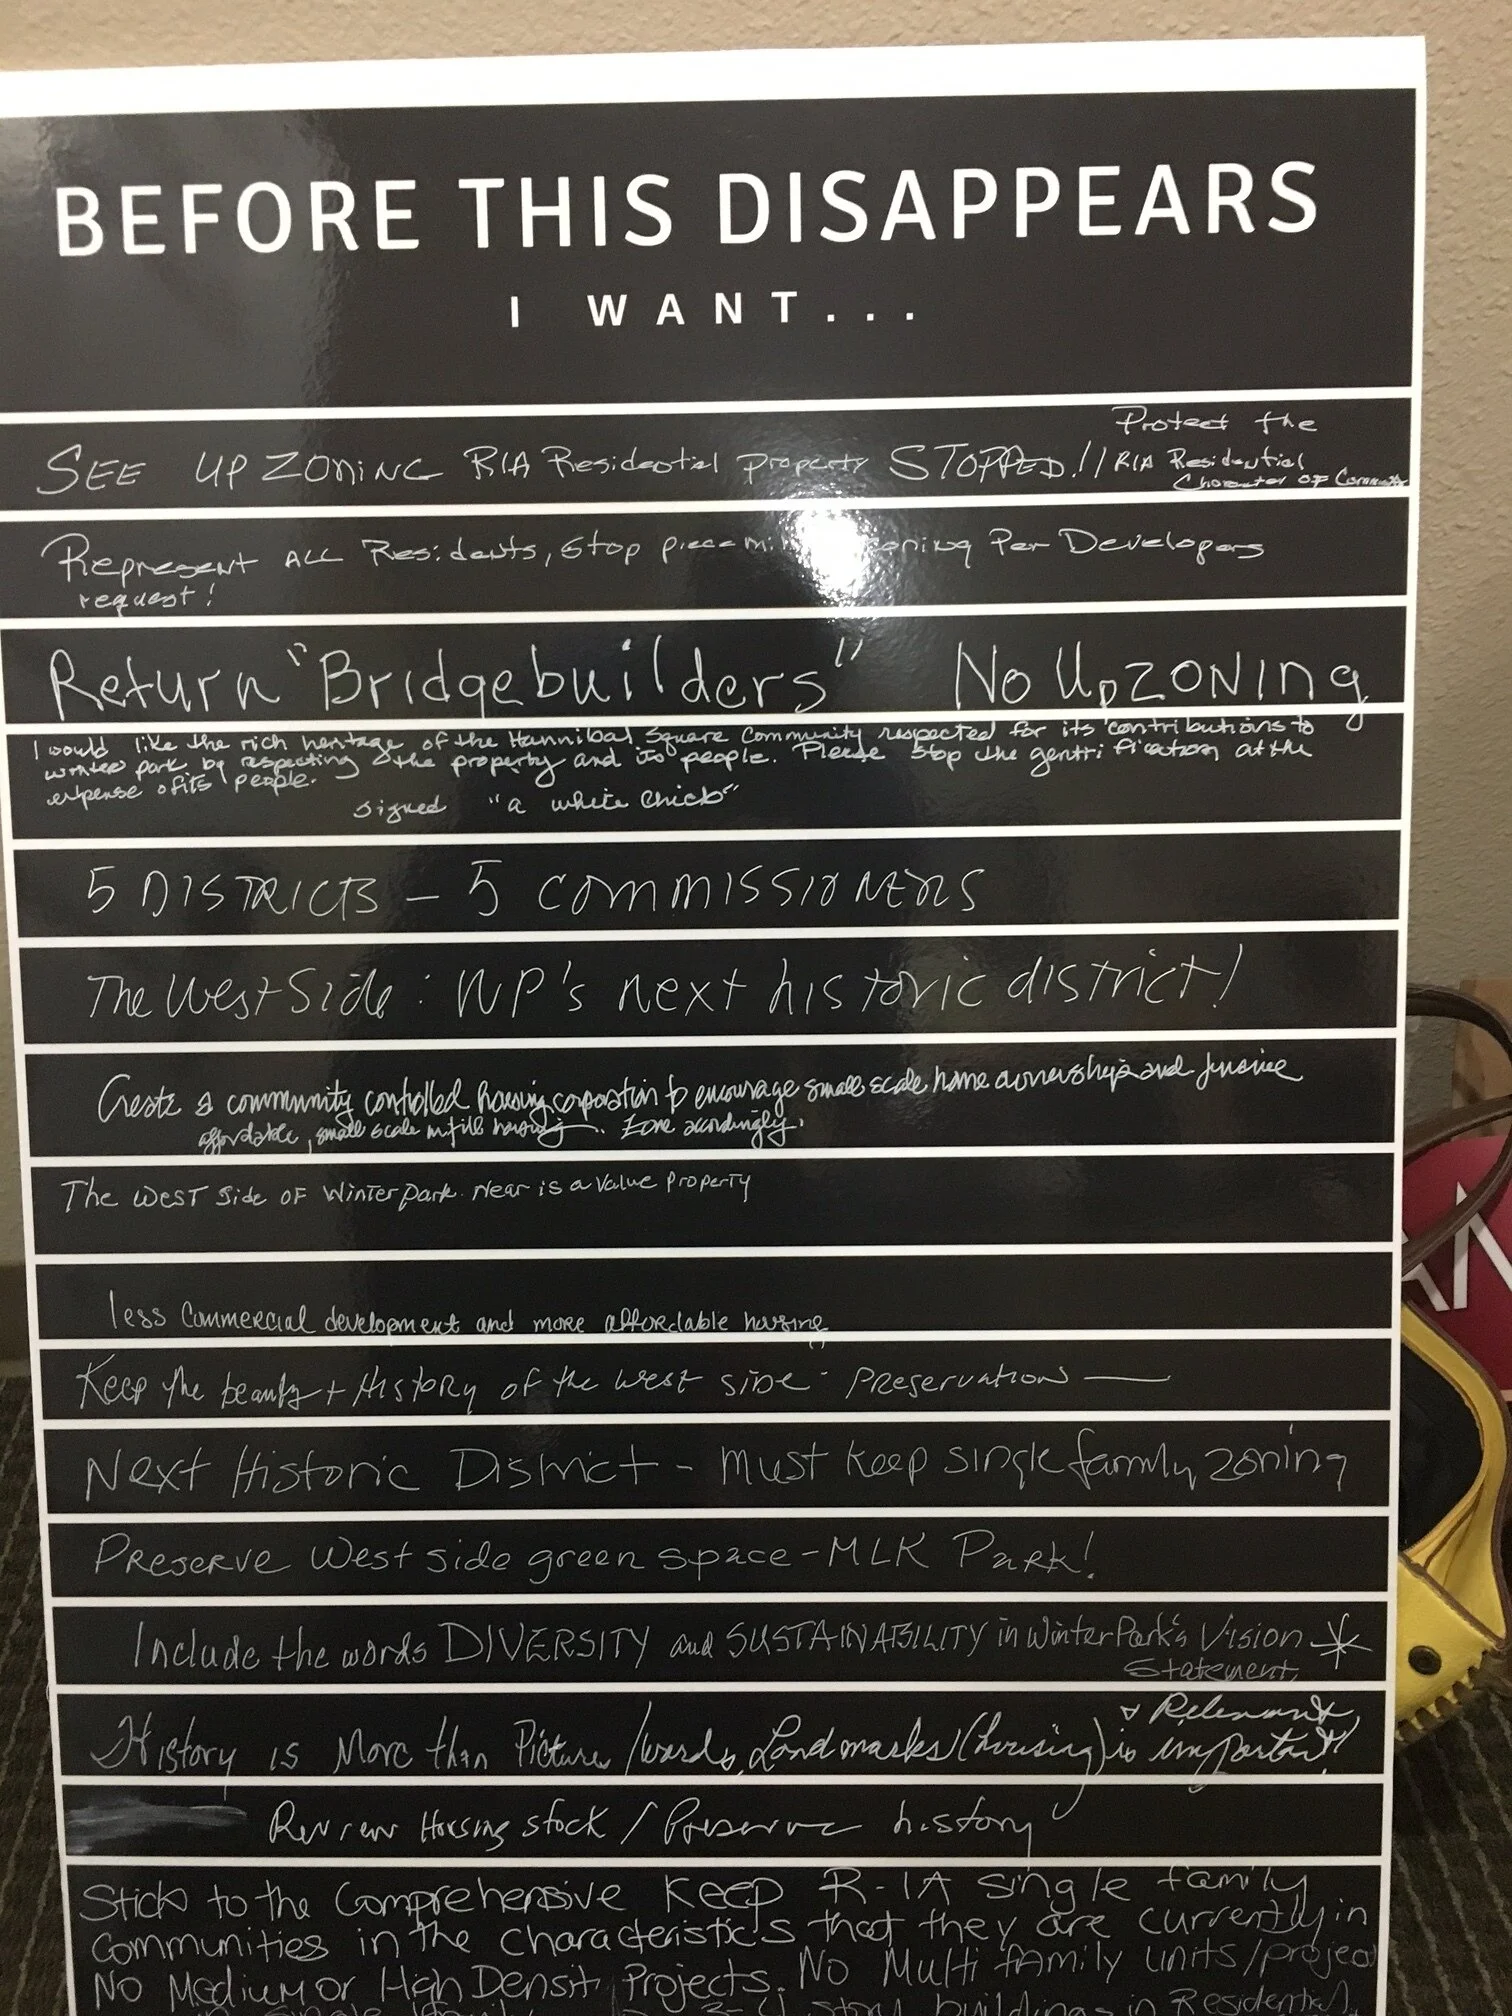 BEFORE THIS DISAPPEARS
I WANT...
SEE UPZONING R1A Residential property STOPPED!! Protect the
R1A Residential
Character of
Represent ALL Residents, Stop Per Developers
request!
Return "Bridgebuilders" No UpZONING
I would like the rich heritage of the Hannibal Square Community respected for its contributions to
winter park by respecting the property and its people. Please stop the gentrification at the
expense of its people.
signed "a white chick"
5 DISTRICTS - 5 COMMISSIONERS
The West Side: WP's next historic district!
Create a community controlled housing corporation to encourage small scale home ownership and finance
affordable, small scale infill housing. Zone accordingly.
The WEST Side OF Winter park Near is a Value Property
less Commercial development and more affordable housing
Keep the beauty + HISTORY of the west side PRESERVATION —
Next Historic District - must keep single family zoning
PRESERVE West side green space - MLK Park!
Include the words DIVERSITY and SUSTAINABILITY in Winter Park's Vision
Statement
History is More than Picture/words, Landmarks (housing) is important!
& Relevant
Housing stock / Preserve history
Stick to the Comprehensive Keep R-1A single family
Communities in the characteristics that they are currently in
No Medium or High Density Projects. No Multi family units/
single story buildings in Residential